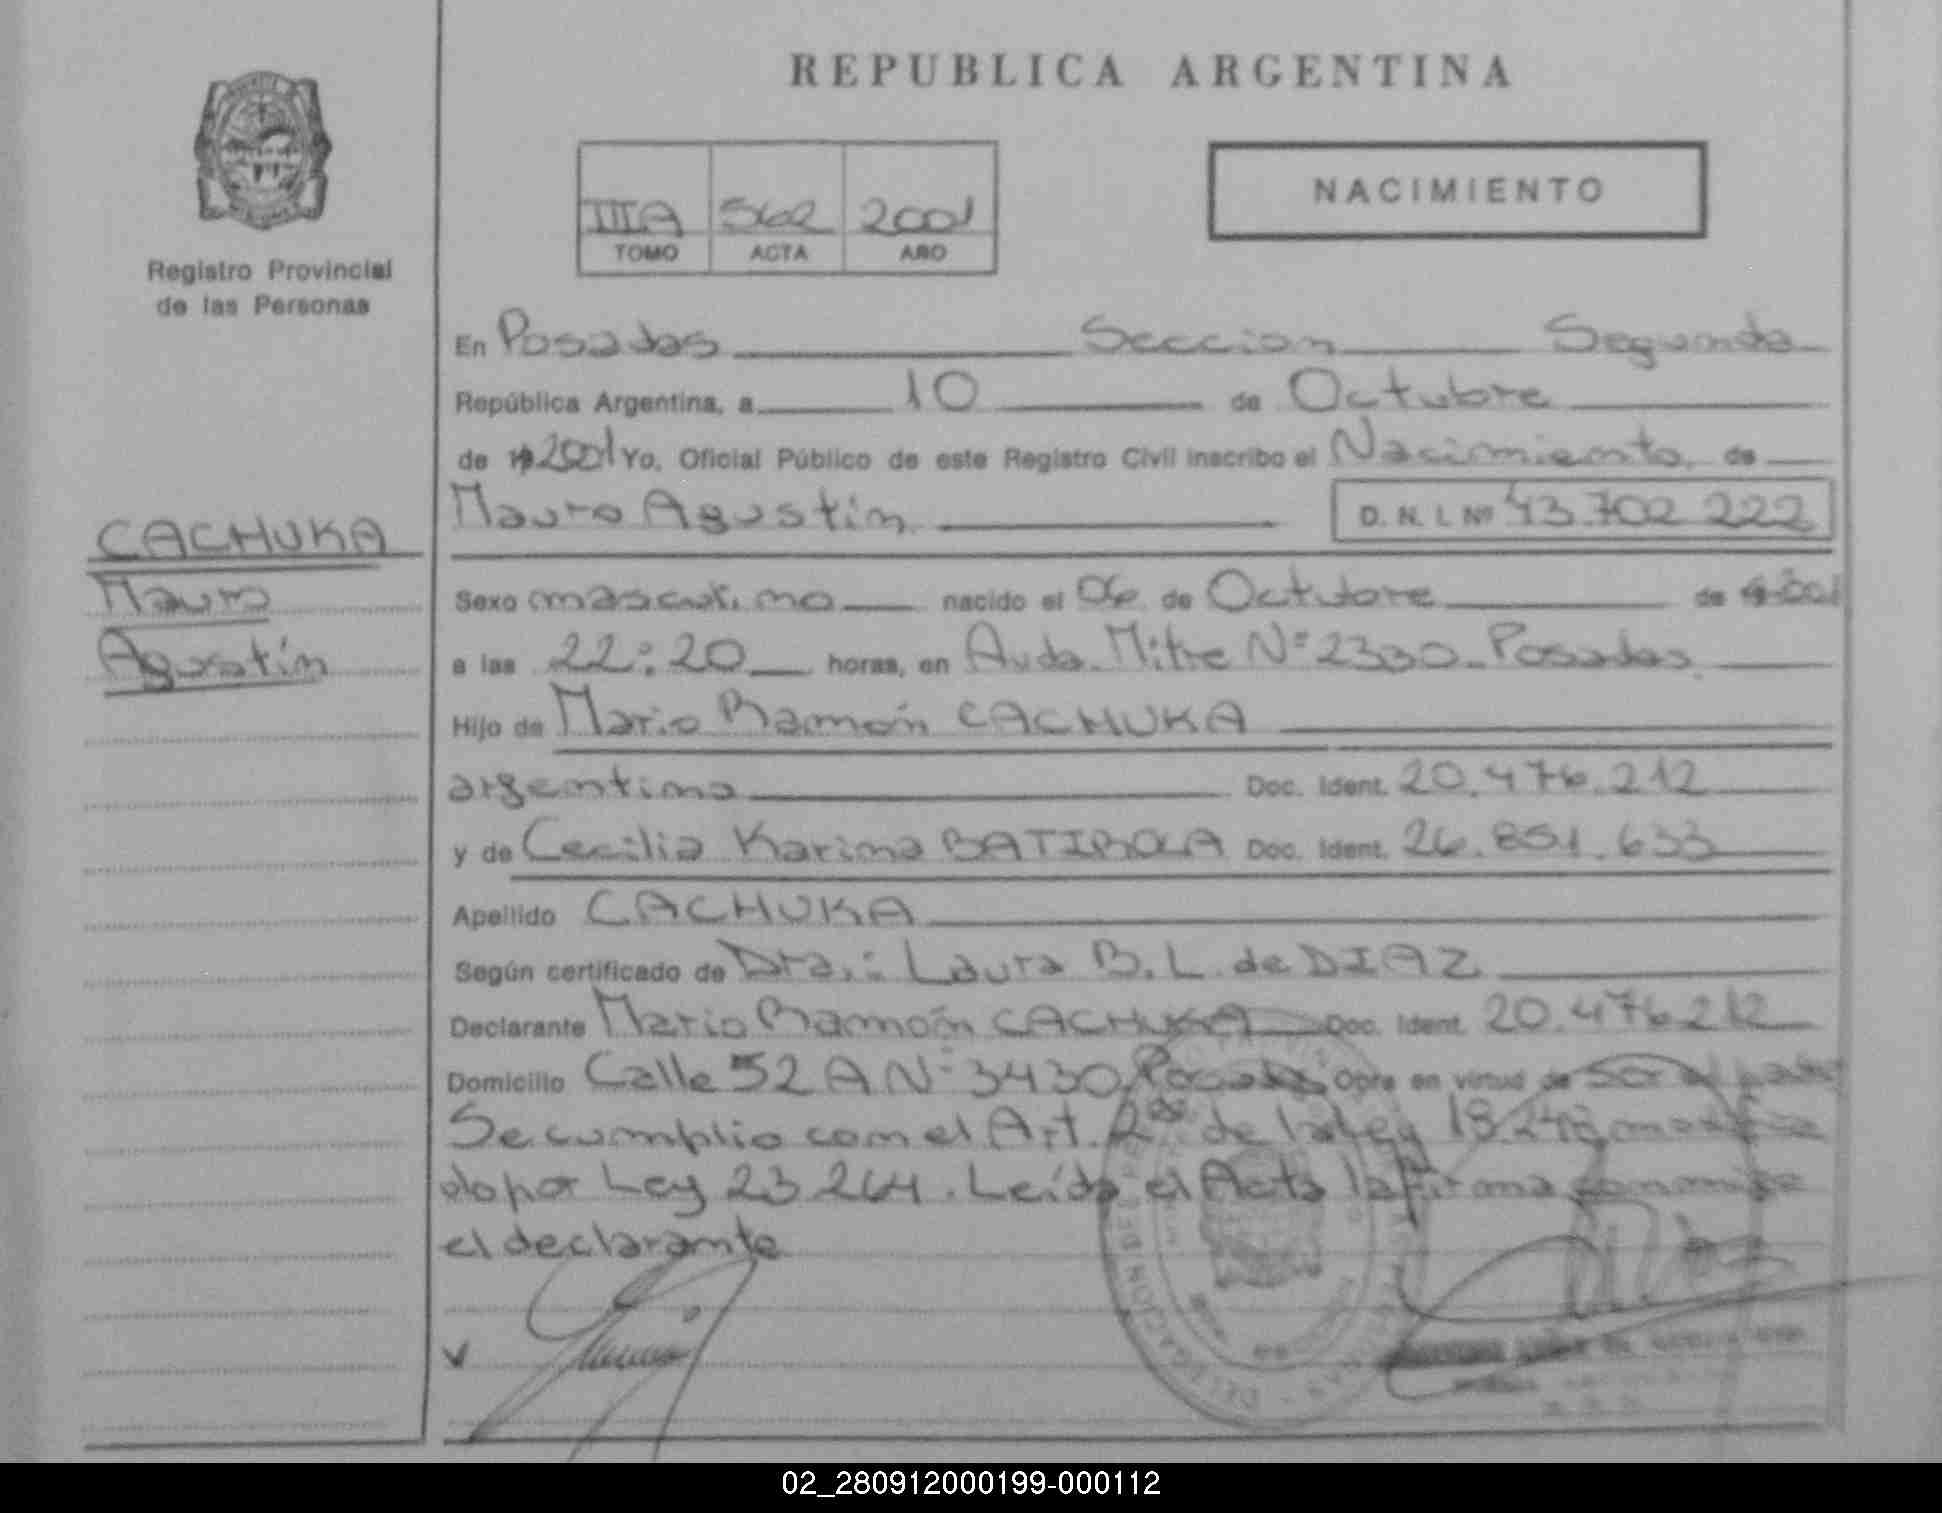 REPUBLICA ARGENTINA
NACIMIENTO
IIIA 562 2001
TOMO ACTA AÑO
Registro Provincial
de las Personas
CACHUKA
Mauro
Agustín
En Posadas Seccion Segunda
República Argentina, a 10 de Octubre
de 2001 Yo, Oficial Público de este Registro Civil inscribo el Nacimiento de
Mauro Agustín D. N. I. Nº 43.702.222
Sexo masculino nacido el 06 de Octubre de 2001
a las 22:20 horas, en Avda. Mitre Nº 2330 - Posadas
Hijo de Mario Ramón CACHUKA
argentino Doc. Ident. 20.476.212
y de Cecilia Karina BATIROLA Doc. Ident. 26.851.633
Apellido CACHUKA
Según certificado de Dra.: Laura B. L. de DIAZ
Declarante Mario Ramón CACHUKA Doc. Ident. 20.476.212
Domicilio Calle 52 A Nº 3430 Posadas Obra en virtud de ser el padre
Se cumplio con el Art. 2do. de la Ley 18.248 modifica
do por Ley 23.264. Leída el Acta la firma conmigo
el declarante
02_280912000199-000112